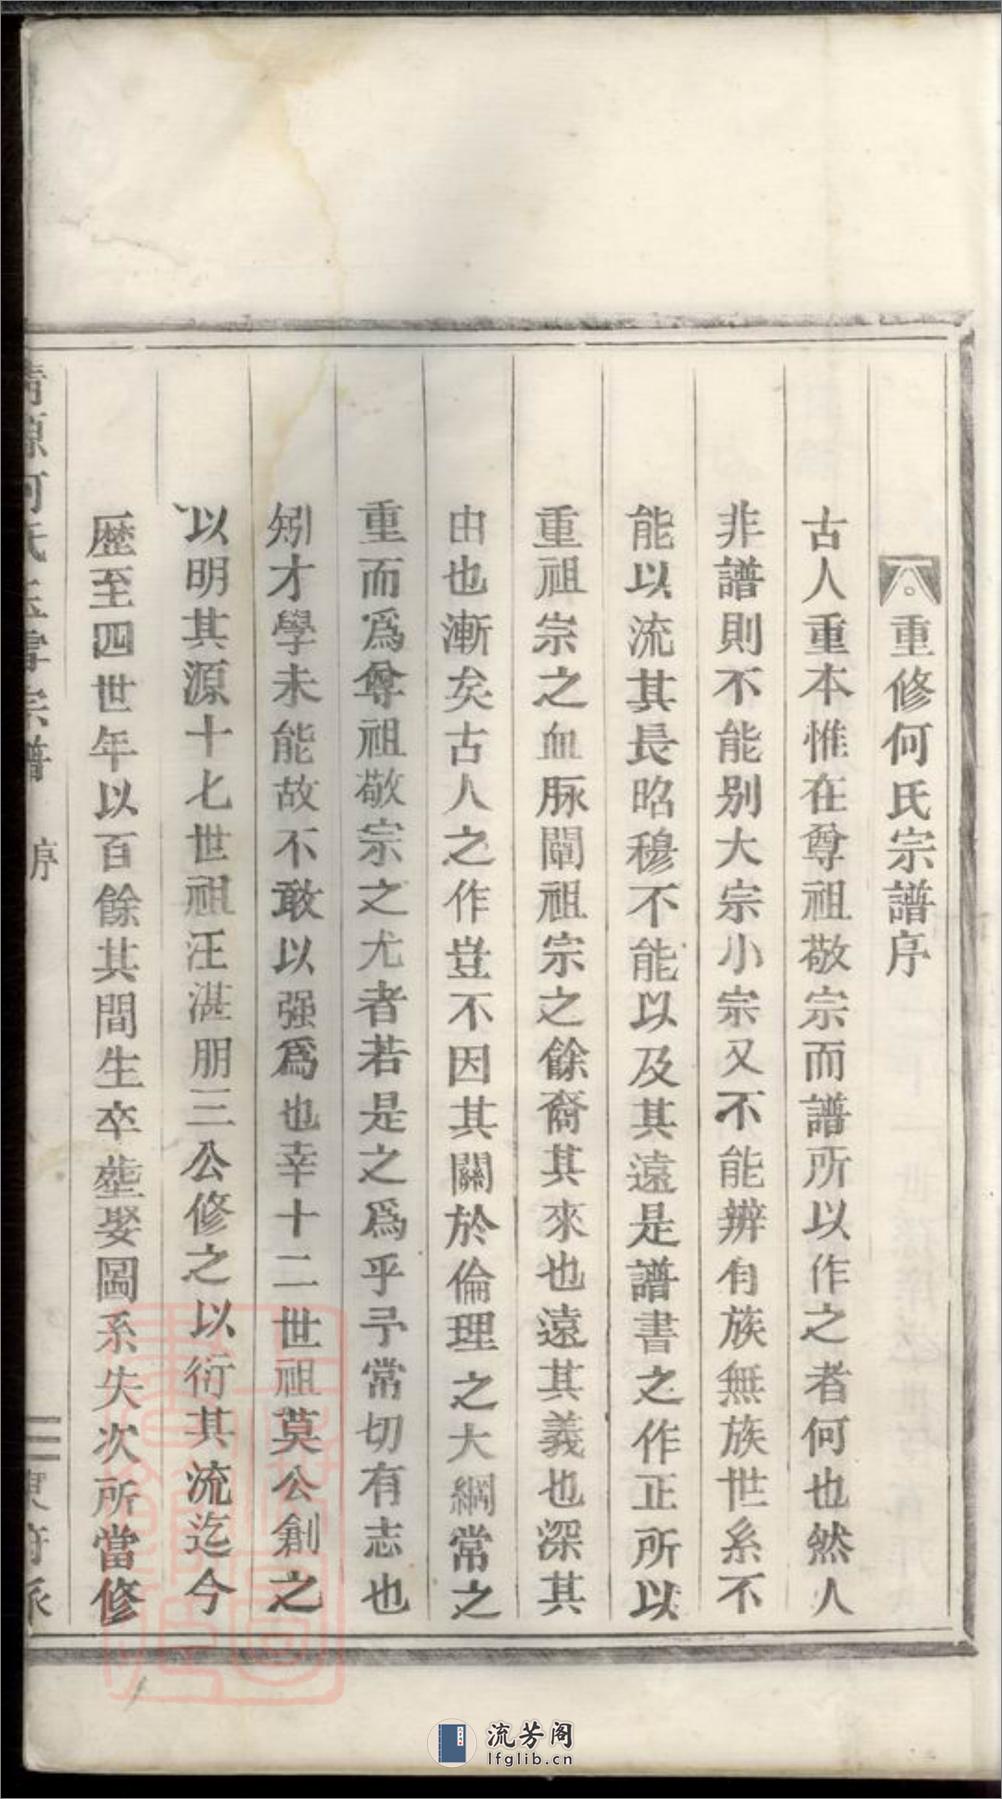 重修何氏宗譜序
古人重本惟在尊祖敬宗而譜所以作之者何也然人
非譜則不能别大宗小宗又不能辨有族無族世系不
能以流其長昭穆不能以及其遠是譜書之作正所以
重祖宗之血脉闡祖宗之餘裔其來也遠其義也深其
由也漸矣古人之作豈不因其關於倫理之大綱常之
重而爲尊祖敬宗之尤者若是之爲乎予常切有志也
矧才學未能故不敢以强爲也幸十二世祖莫公創之
以明其源十七世祖汪湛朋三公修之以衍其流迄今
歷至四世年以百餘其間生卒塟娶圖系失次所當修
何氏
宗譜
序
二
東府派
流芳阁
lfglib.cn